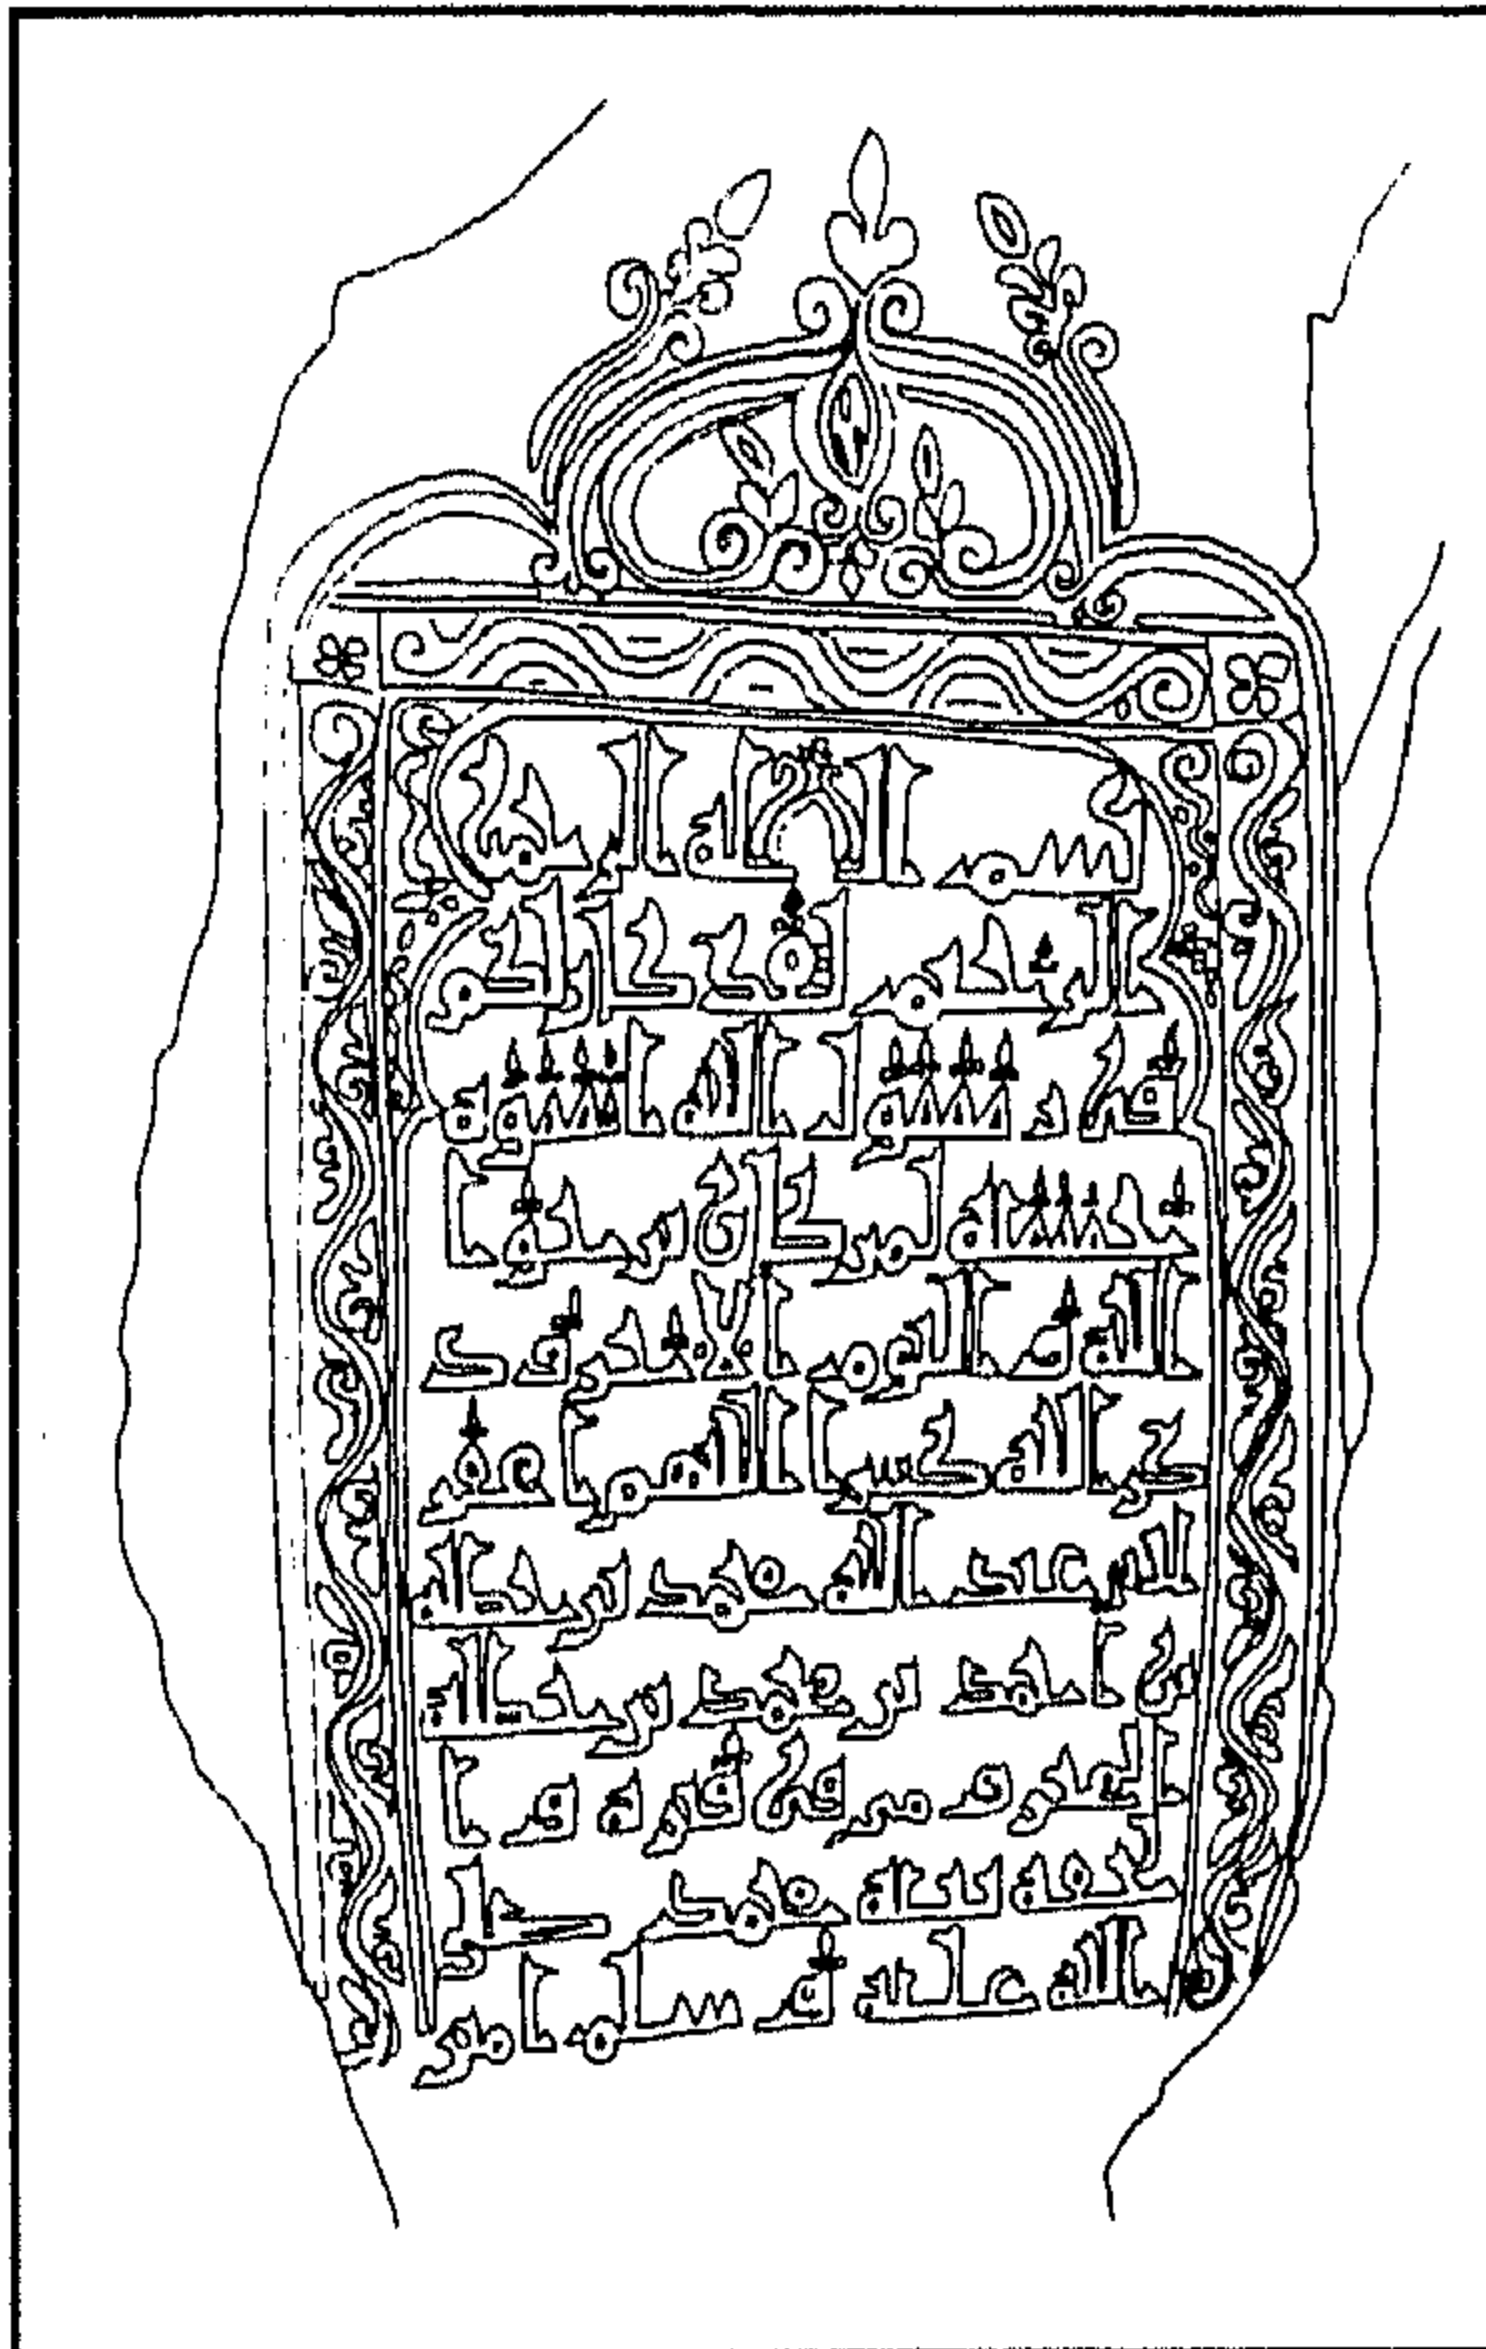 بسم الله الرحمن
الرحيم لقد كان لكم
في رسول الله اسوة
حسنة لمن كان يرجوا
الله واليوم الاخر وذكـ
ـر الله كثيرا اللهم اغفر
عبد الله محمد بن عبد الله
بن احمد بن محمد بن عبد الله
المعروف وا
لحقه بنبيه محمد صلى
الله عليه وسلم امين